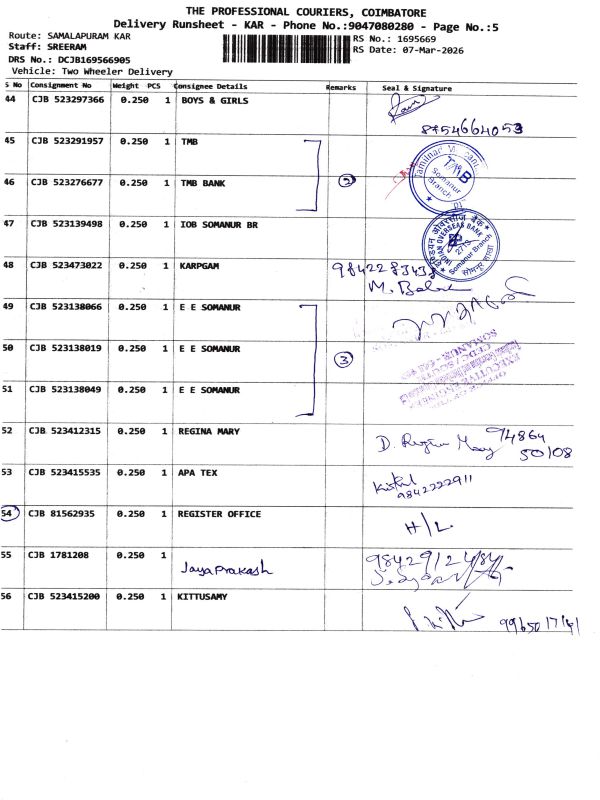 THE PROFESSIONAL COURIERS, COIMBATORE
Delivery Runsheet - KAR - Phone No.:9047080280 - Page No.:5
Route: SAMALAPURAM KAR
RS No.: 1695669
Staff: SREERAM
RS Date: 07-Mar-2026
DRS No.: DCJB169566905
Vehicle: Two Wheeler Delivery
S No Consignment No Weight PCS Consignee Details Remarks Seal & Signature
44 CJB 523297366 0.250 1 BOYS & GIRLS
8754664053
45 CJB 523291957 0.250 1 TMB
46 CJB 523276677 0.250 1 TMB BANK 2
TMB
Somanur
Branch
47 CJB 523139498 0.250 1 IOB SOMANUR BR
INDIAN OVERSEAS BANK
Somanur Branch
48 CJB 523473022 0.250 1 KARPGAM
49 CJB 523138066 0.250 1 E E SOMANUR
50 CJB 523138019 0.250 1 E E SOMANUR 3
51 CJB 523138049 0.250 1 E E SOMANUR
52 CJB 523412315 0.250 1 REGINA MARY
94864
50108
53 CJB 523415535 0.250 1 APA TEX
9842222911
54 CJB 81562935 0.250 1 REGISTER OFFICE H/L
55 CJB 1781208 0.250 1
Jayaprakash
56 CJB 523415200 0.250 1 KITTUSAMY